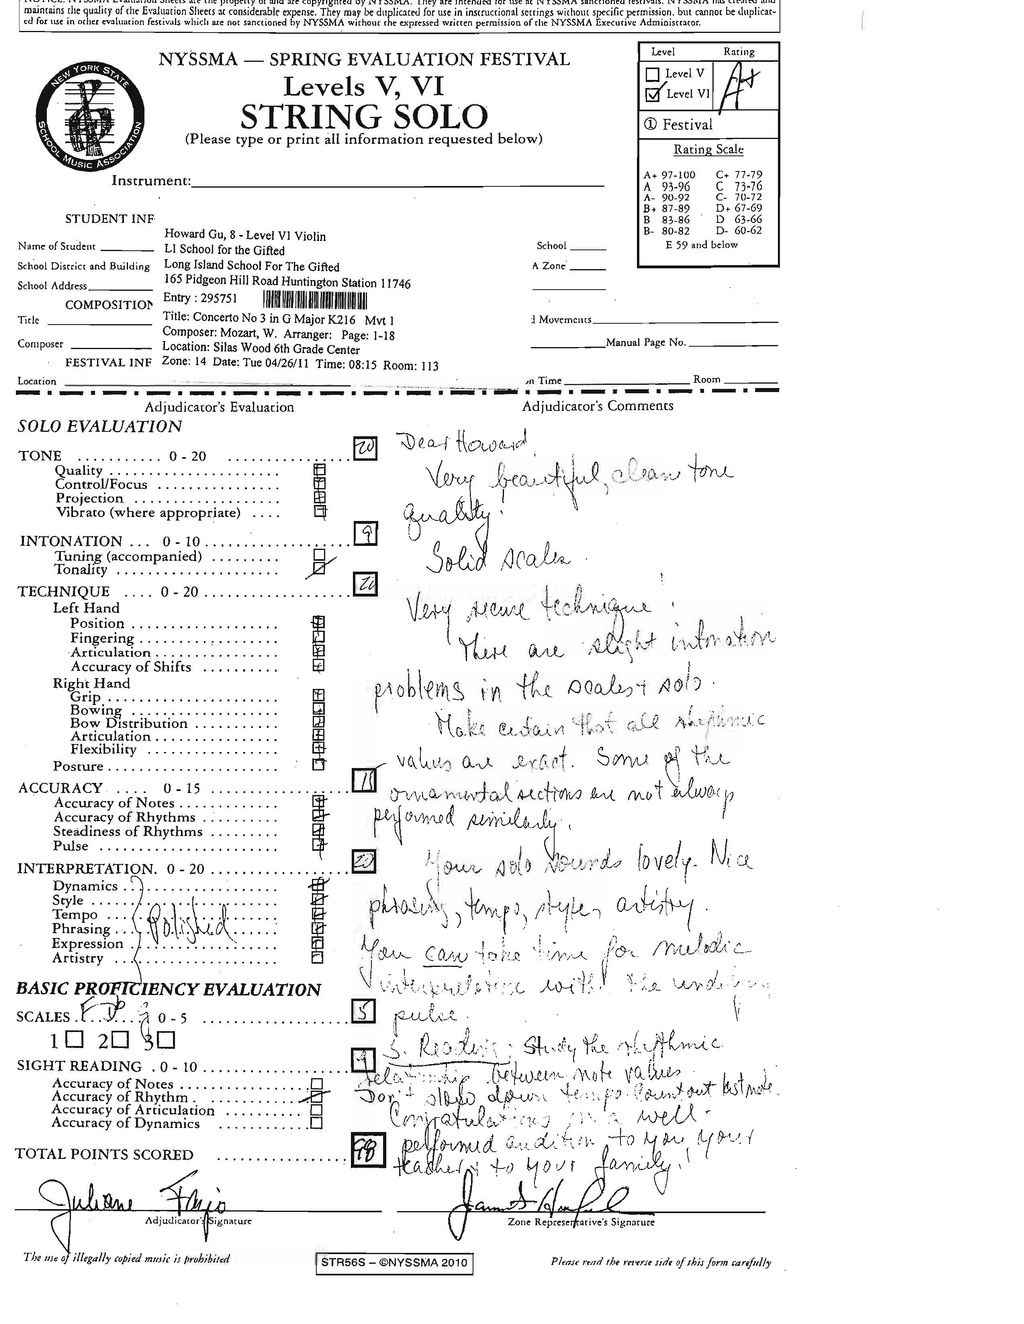 maintains the quality of the Evaluation Sheets at considerable expense. They may be duplicated for use in instructional settings without specific permission, but cannot be duplicat-
ed for use in other evaluation festivals which are not sanctioned by NYSSMA without the expressed written permission of the NYSSMA Executive Administrator.
NEW YORK STATE SCHOOL MUSIC ASSOCIATION
NYSSMA — SPRING EVALUATION FESTIVAL
Levels V, VI
STRING SOLO
(Please type or print all information requested below)
Instrument:
Level Rating
Level V
Level VI A+
① Festival
Rating Scale
A+ 97-100 C+ 77-79
A 93-96 C 73-76
A- 90-92 C- 70-72
B+ 87-89 D+ 67-69
B 83-86 D 63-66
B- 80-82 D- 60-62
E 59 and below
STUDENT INF
Howard Gu, 8 - Level VI Violin
Name of Student LI School for the Gifted School
School District and Building Long Island School For The Gifted A Zone
School Address 165 Pidgeon Hill Road Huntington Station 11746
COMPOSITION Entry : 295751
Title Title: Concerto No 3 in G Major K216 Mvt 1 d Movements
Composer: Mozart, W. Arranger: Page: 1-18
Composer Location: Silas Wood 6th Grade Center Manual Page No.
FESTIVAL INF Zone: 14 Date: Tue 04/26/11 Time: 08:15 Room: 113
Location n Time Room
Adjudicator's Evaluation Adjudicator's Comments
SOLO EVALUATION
TONE 0 - 20 20
Quality
Control/Focus
Projection
Vibrato (where appropriate)
INTONATION ... 0 - 10 9
Tuning (accompanied)
Tonality
TECHNIQUE .... 0 - 20 20
Left Hand
Position
Fingering
Articulation
Accuracy of Shifts
Right Hand
Grip
Bowing
Bow Distribution
Articulation
Flexibility
Posture
ACCURACY .... 0 - 15
Accuracy of Notes
Accuracy of Rhythms
Steadiness of Rhythms
Pulse
INTERPRETATION. 0 - 20 20
Dynamics
Style
Tempo
Phrasing
Expression
Artistry
Polished
BASIC PROFICIENCY EVALUATION
SCALES 0 - 5 5
1 2 3
SIGHT READING . 0 - 10 9
Accuracy of Notes
Accuracy of Rhythm
Accuracy of Articulation
Accuracy of Dynamics
TOTAL POINTS SCORED 98
Dear Howard,
Very beautiful, clean tone
quality!
Solid scales.
Very secure technique!
There are slight intonation
problems in the scales + solo.
Make certain that all rhythmic
values are exact. Some of the
ornamental sections are not always
performed similarly.
Your solo sounds lovely. Nice
phrasing, tempo, style, artistry.
You can take time for melodic
interpretation with the underlying
pulse.
S. Reading: Study the rhythmic
relationship between note values.
Don't slow down tempo. Count out last note.
Congratulations on a well-
performed audition to you, your
teachers + to your family!
Juliane
Adjudicator's Signature
Zone Representative's Signature
The use of illegally copied music is prohibited
STR56S – ©NYSSMA 2010
Please read the reverse side of this form carefully